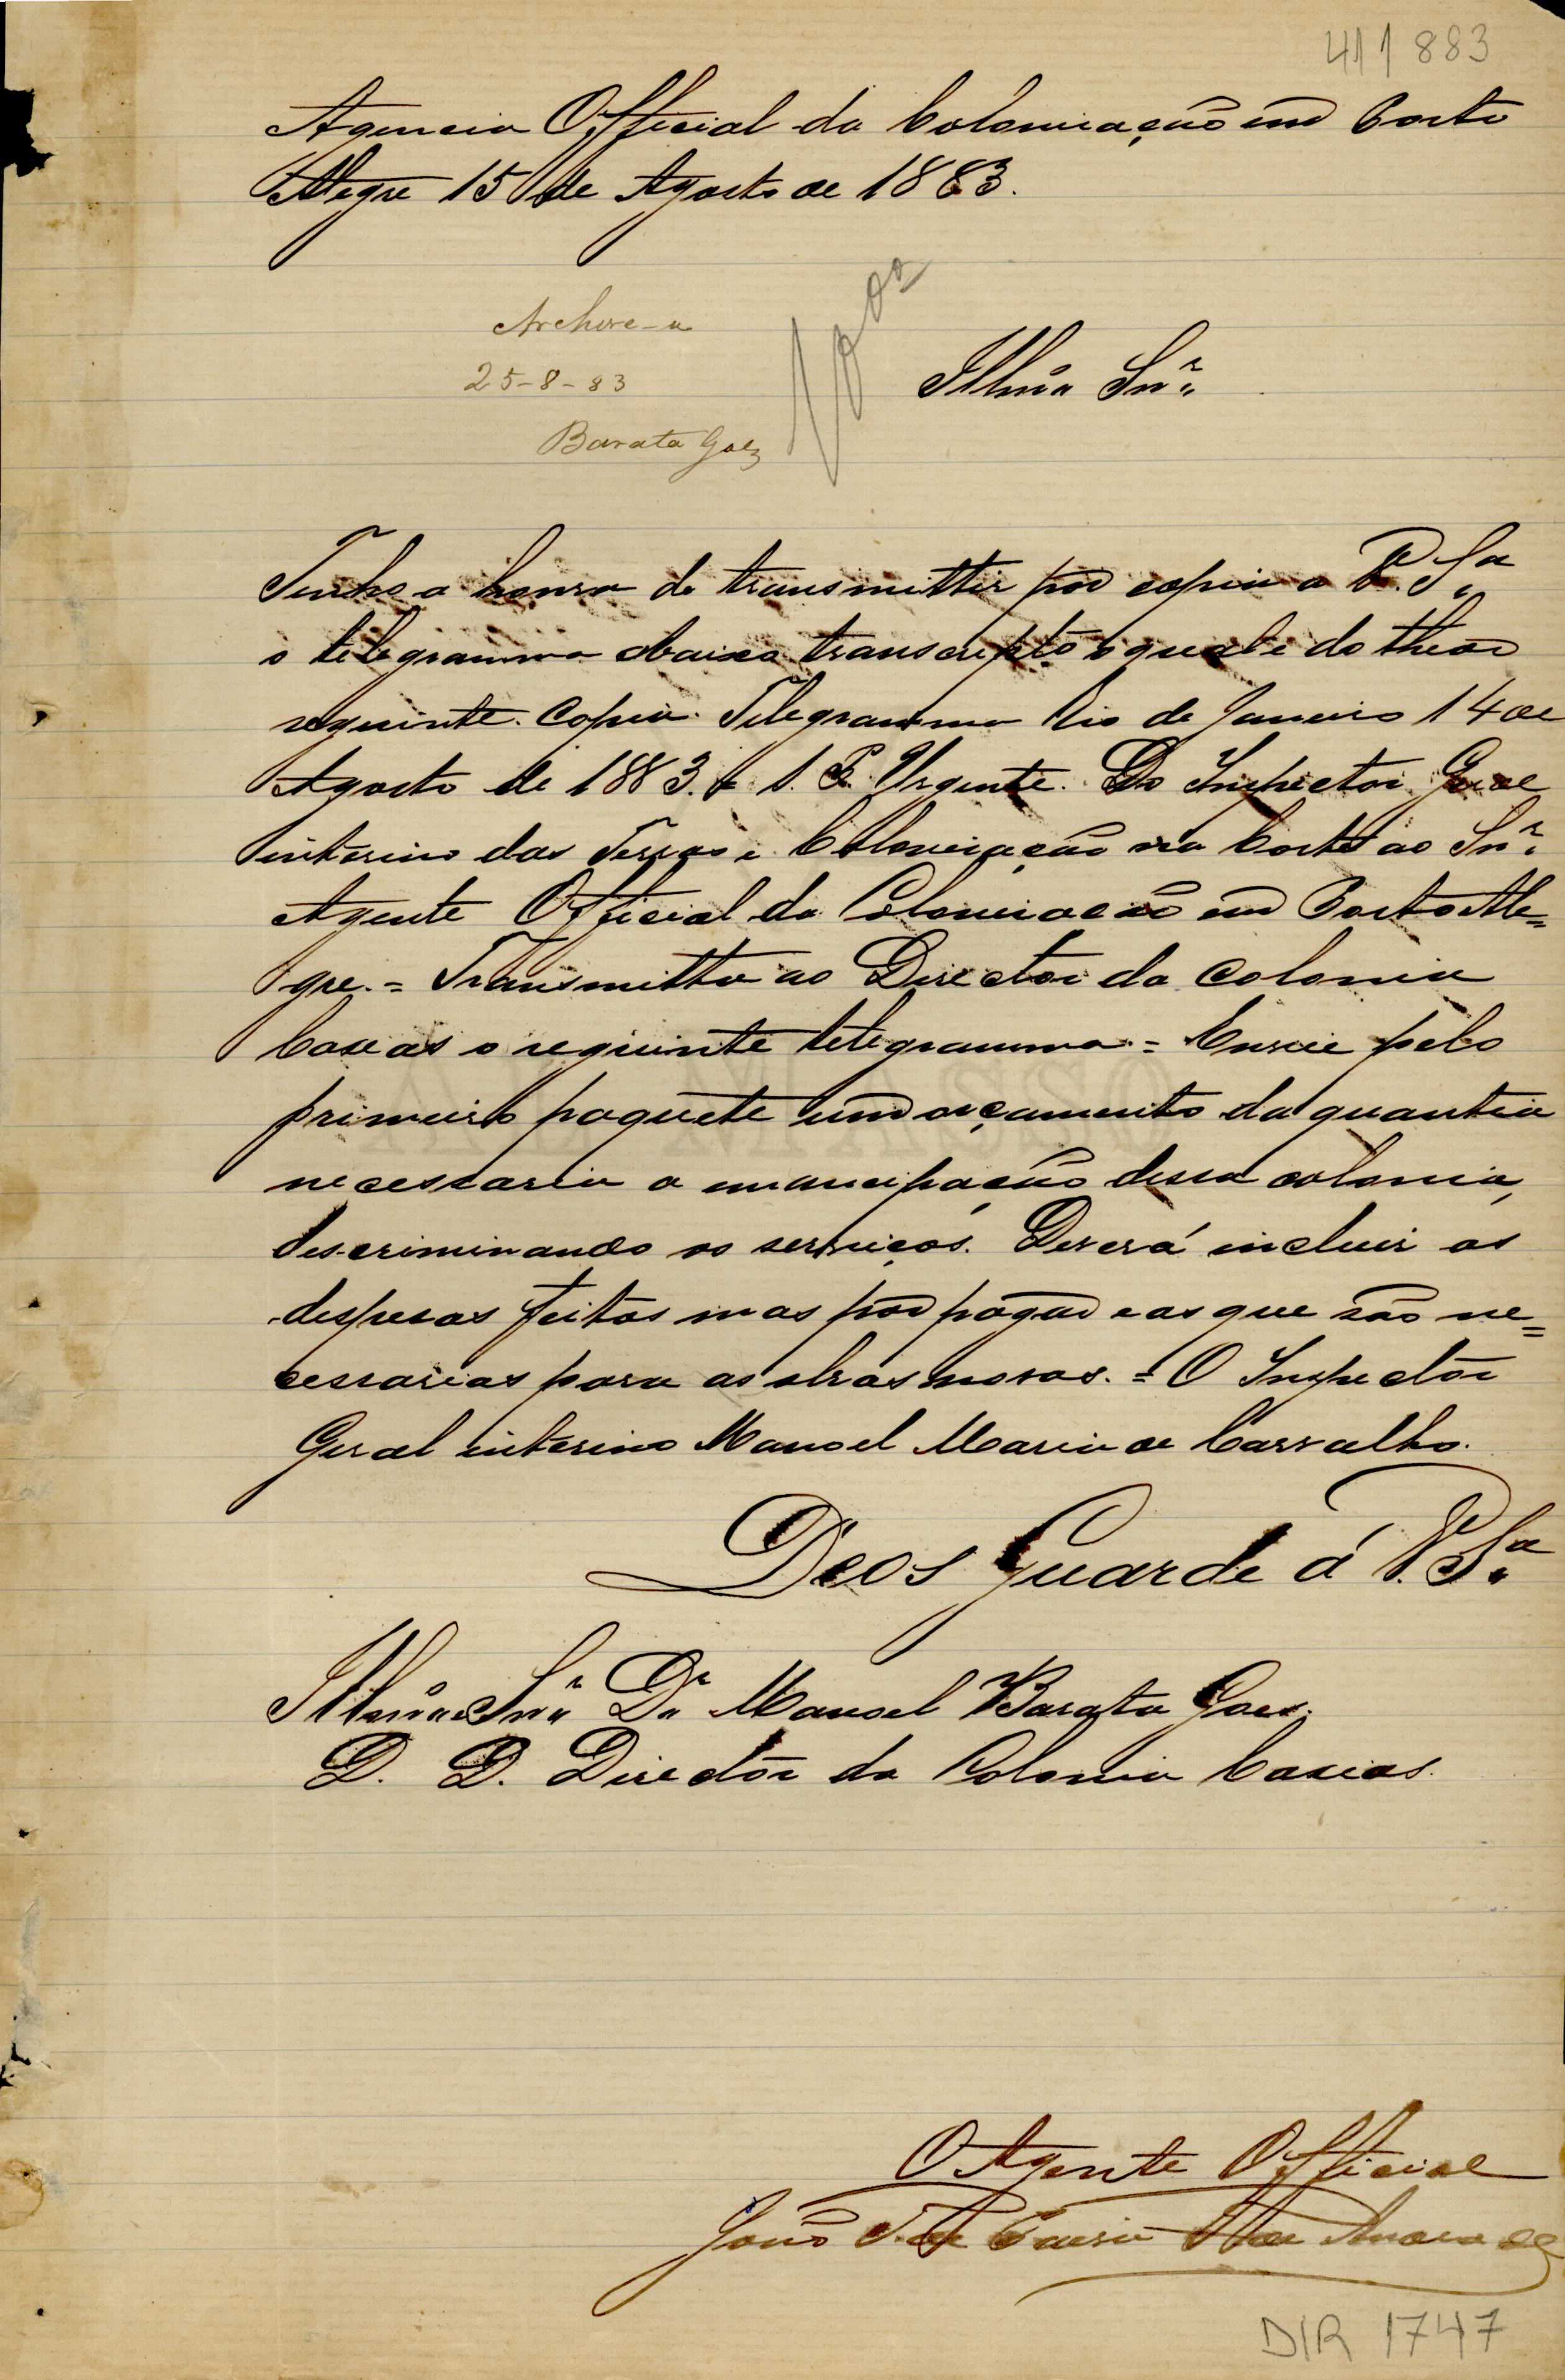 411883
Agencia Official da Colonisação em Porto
Alegre 15 de Agosto de 1883.
Archive-se
25-8-83
Barata Goes
Illmo. Snr.
Tenho a honra de transmittir por copia a V. Sa.
o telegramma abaixo transcripto o qual é do theor
seguinte. Copia. Telegramma Rio de Janeiro 14 de
Agosto de 1883. S. P. Urgente. Do Inspector Geral
interino das Terras e Colonisação na Corte ao Snr.
Agente Official da Colonisação em Porto Ale=
gre. = Transmitta ao Director da Colonia
Caxias o seguinte telegramma. = Envie pelo
primeiro paquete um orçamento da quantia
necessaria a emancipação dessa colonia,
descriminando os serviços. Deverá incluir as
despesas feitas mas por pagar e as que são ne=
cessarias para as obras novas. = O Inspector
Geral interino Manoel Maria de Carvalho.
Deos Guarde á V. Sa.
Illmo. Snr. Dr. Manoel Barata Goes.
D. D. Director da Colonia Caxias.
O Agente Official
João
DIR 1747